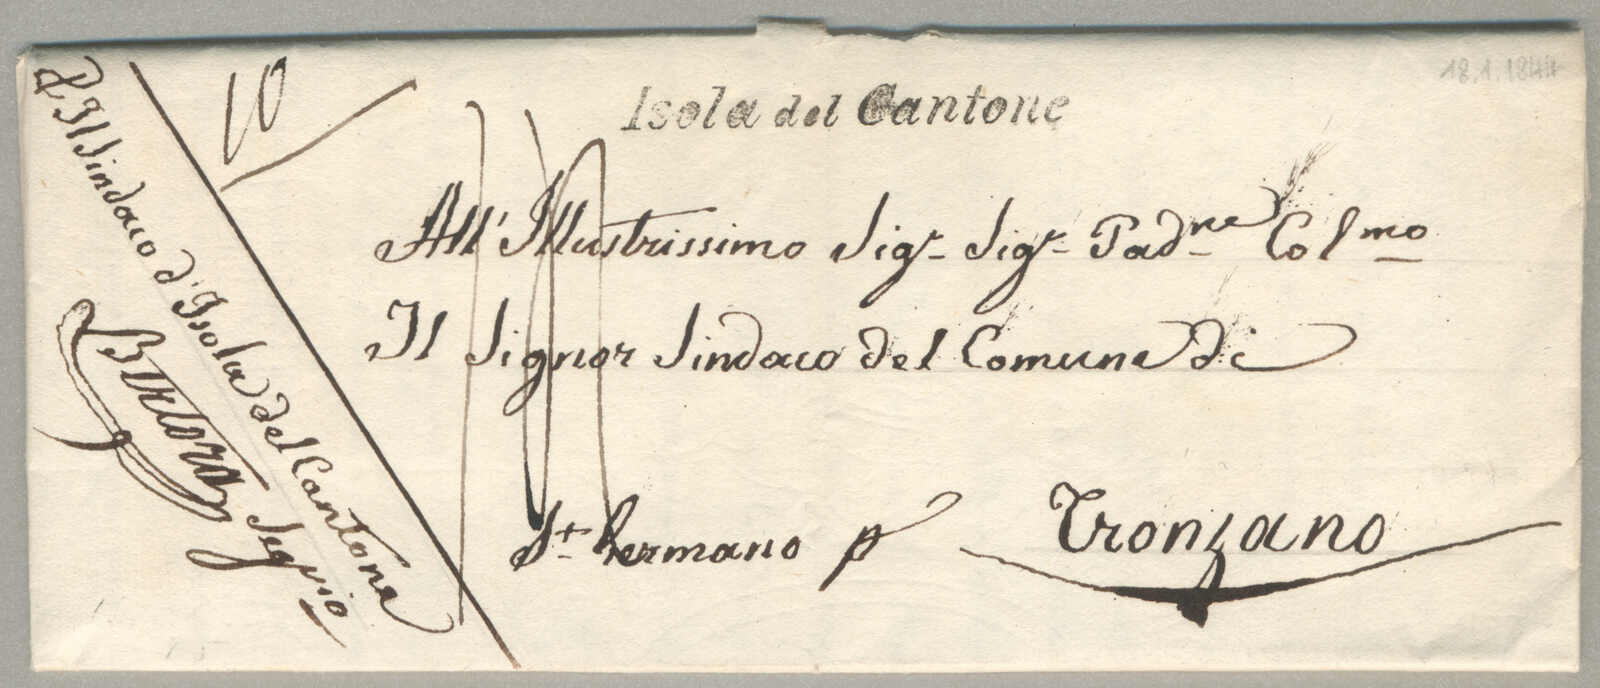 18.1.1844
Isola del Cantone
10
All' Illustrissimo Sigr. Sigr. Padne Colmo
Il Signor Sindaco del Comune di
St. Germano p Tronzano
Il Sindaco d'Isola del Cantone
Segrio